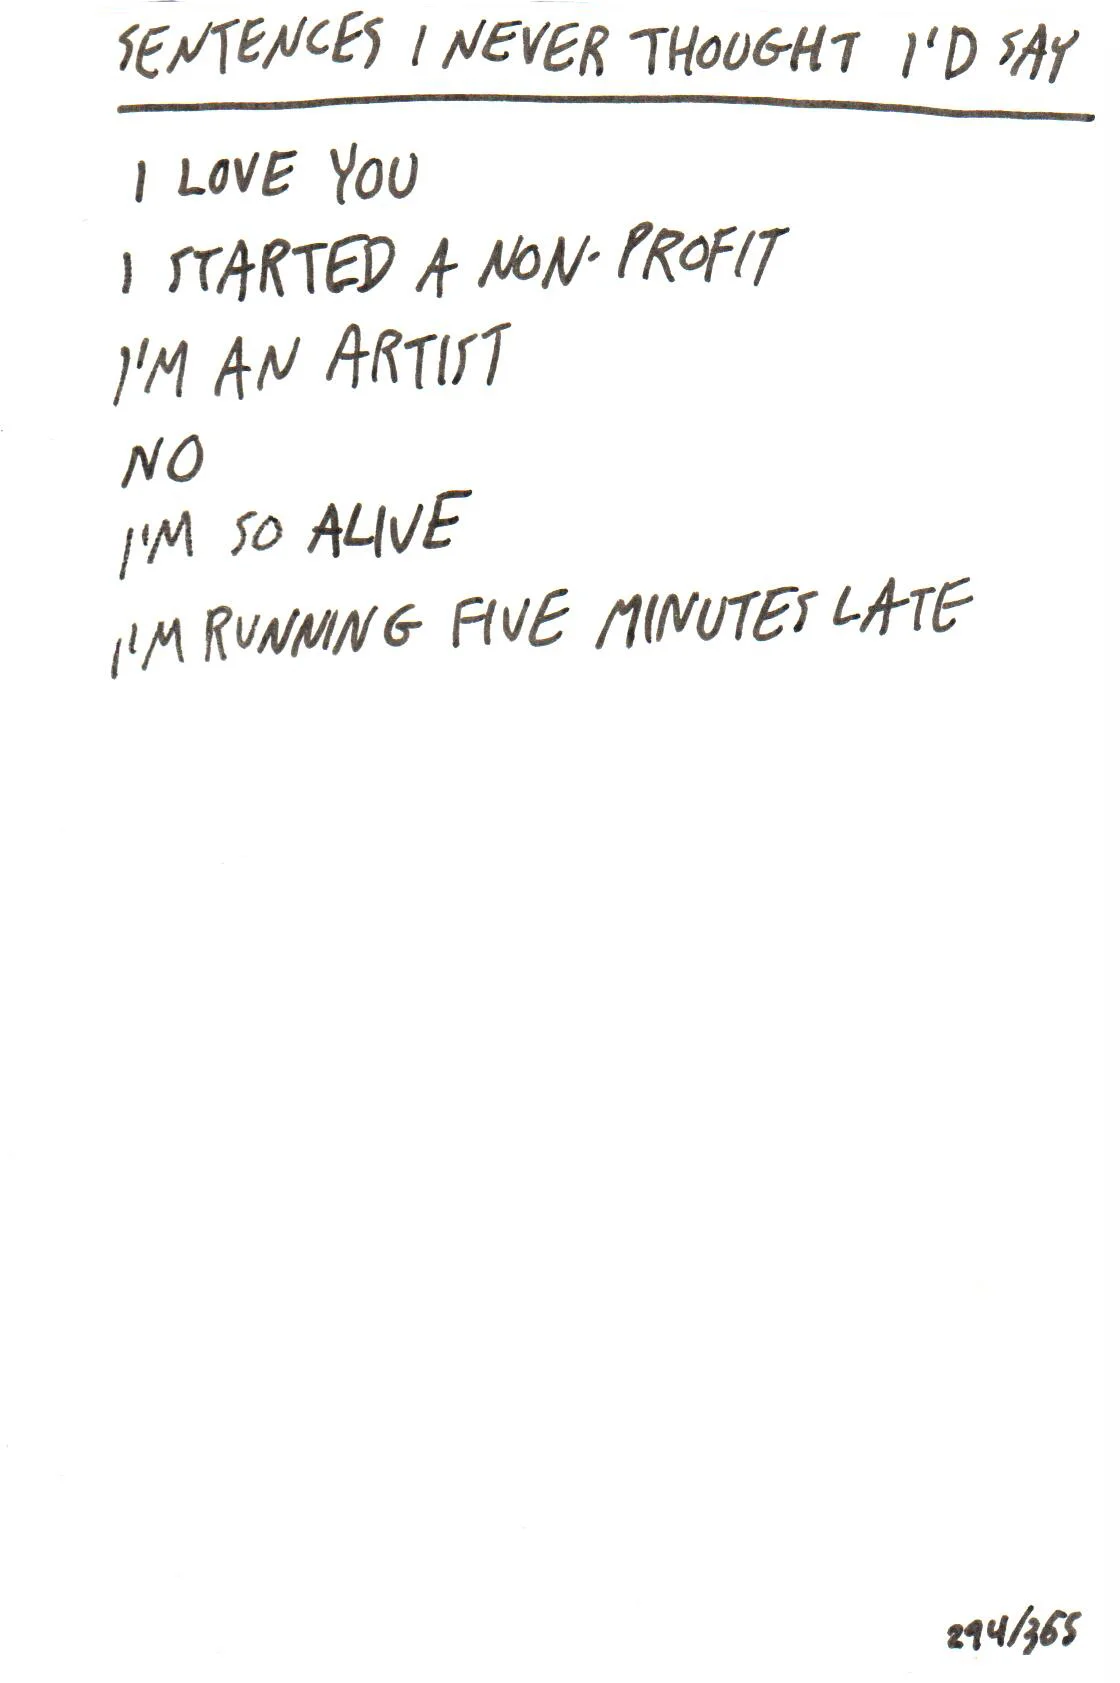 SENTENCES I NEVER THOUGHT I'D SAY
I LOVE YOU
I STARTED A NON-PROFIT
I'M AN ARTIST
NO
I'M SO ALIVE
I'M RUNNING FIVE MINUTES LATE
294/365